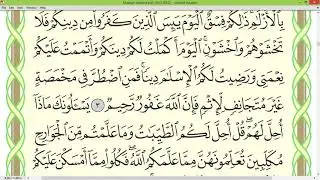 بِٱلْأَزْلَٰمِ ذَٰلِكُمْ فِسْقٌ ٱلْيَوْمَ يَئِسَ ٱلَّذِينَ كَفَرُوا۟ مِن دِينِكُمْ فَلَا
تَخْشَوْهُمْ وَٱخْشَوْنِ ٱلْيَوْمَ أَكْمَلْتُ لَكُمْ دِينَكُمْ وَأَتْمَمْتُ عَلَيْكُمْ
نِعْمَتِى وَرَضِيتُ لَكُمُ ٱلْإِسْلَٰمَ دِينًا فَمَنِ ٱضْطُرَّ فِى مَخْمَصَةٍ
غَيْرَ مُتَجَانِفٍ لِّإِثْمٍ فَإِنَّ ٱللَّهَ غَفُورٌ رَّحِيمٌ ٣ يَسْـَٔلُونَكَ مَاذَآ
أُحِلَّ لَهُمْ قُلْ أُحِلَّ لَكُمُ ٱلطَّيِّبَٰتُ وَمَا عَلَّمْتُم مِّنَ ٱلْجَوَارِحِ
مُكَلِّبِينَ تُعَلِّمُونَهُنَّ مِمَّا عَلَّمَكُمُ ٱللَّهُ فَكُلُوا۟ مِمَّآ أَمْسَكْنَ عَلَيْكُمْ